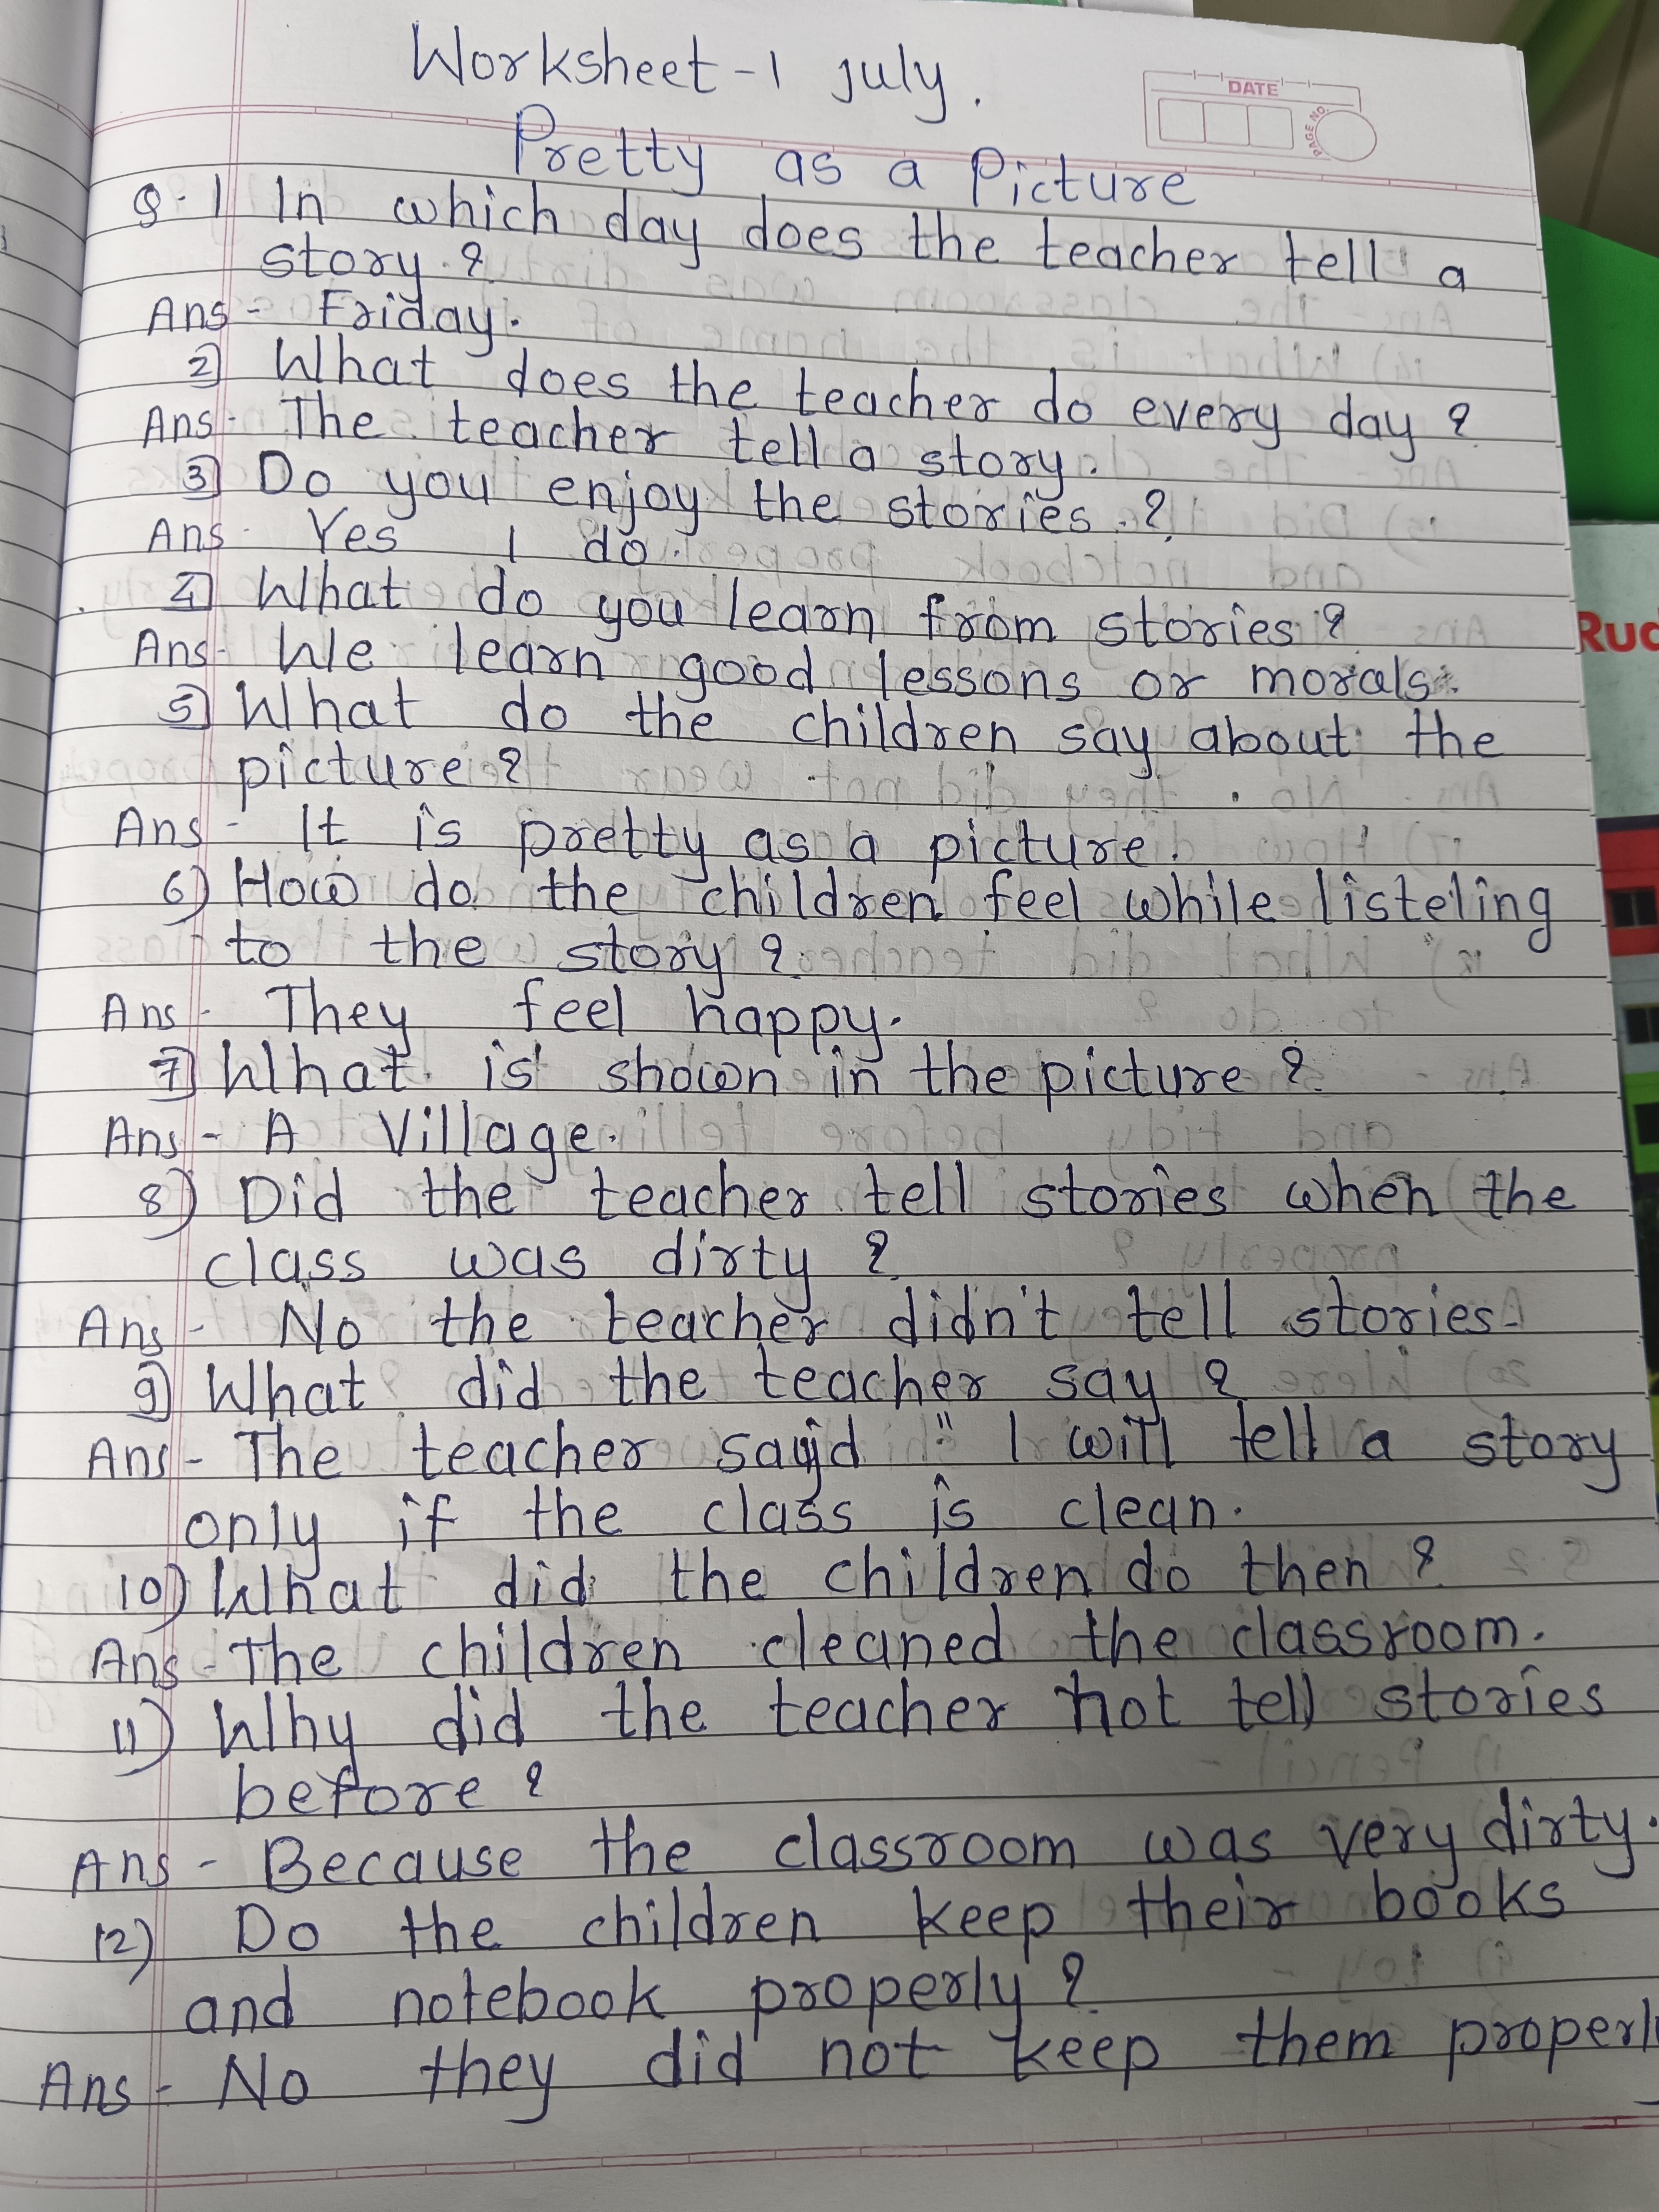 Worksheet-1 july.
DATE
PAGE NO.
Pretty as a Picture
Q.1 In which day does the teacher tell a
story?
Ans - Friday.
2) What does the teacher do every day?
Ans- The teacher tell a story.
3) Do you enjoy the stories?
Ans- Yes I do.
4) What do you learn from stories?
Ans- We learn good lessons or morals.
5) What do the children say about the
picture?
Ans - It is pretty as a picture.
6) How do the children feel while listeling
to the story?
Ans - They feel happy.
7) What is shown in the picture?
Ans - A Village.
8) Did the teacher tell stories when the
class was dirty?
Ans - No the teacher didn't tell stories-
9) What did the teacher say?
Ans - The teacher said " I will tell a story
only if the class is clean.
10) What did the children do then?
Ans - The children cleaned the classroom.
11) Why did the teacher not tell stories
before?
Ans - Because the classroom was very dirty.
12) Do the children keep their books
and notebook properly?
Ans - No they did not keep them properly
Ruc